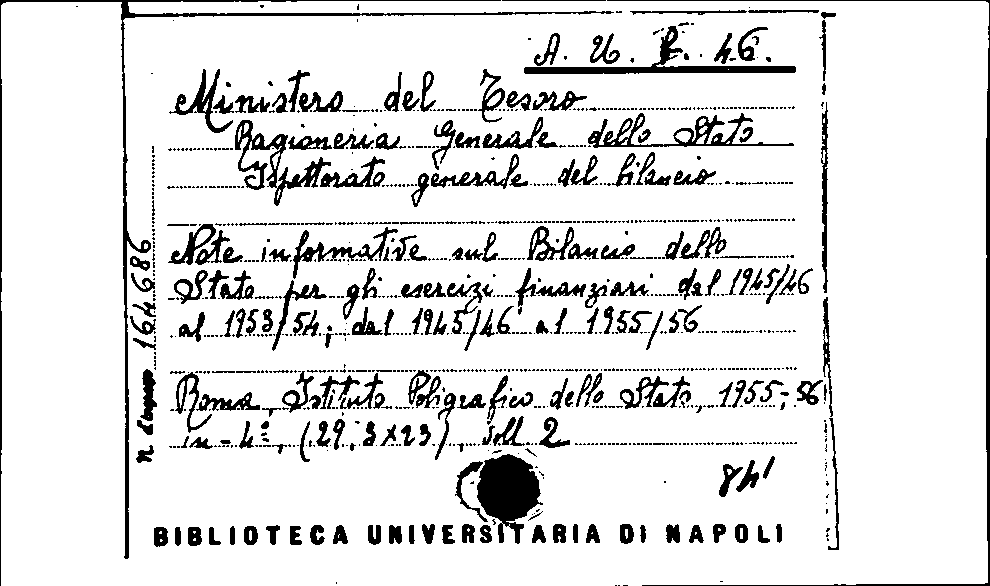 A. U. B. 46.
Ministero del Tesoro
Ragioneria Generale dello Stato.
Ispettorato generale del bilancio.
Note informative sul Bilancio dello
Stato per gli esercizi finanziari dal 1945/46
al 1953/54; dal 1945/46 al 1955/56
Roma, Istituto Poligrafico dello Stato, 1955-56
in-4º, (29,3x23), voll 2
841
n. d'ingresso 164686
BIBLIOTECA UNIVERSITARIA DI NAPOLI